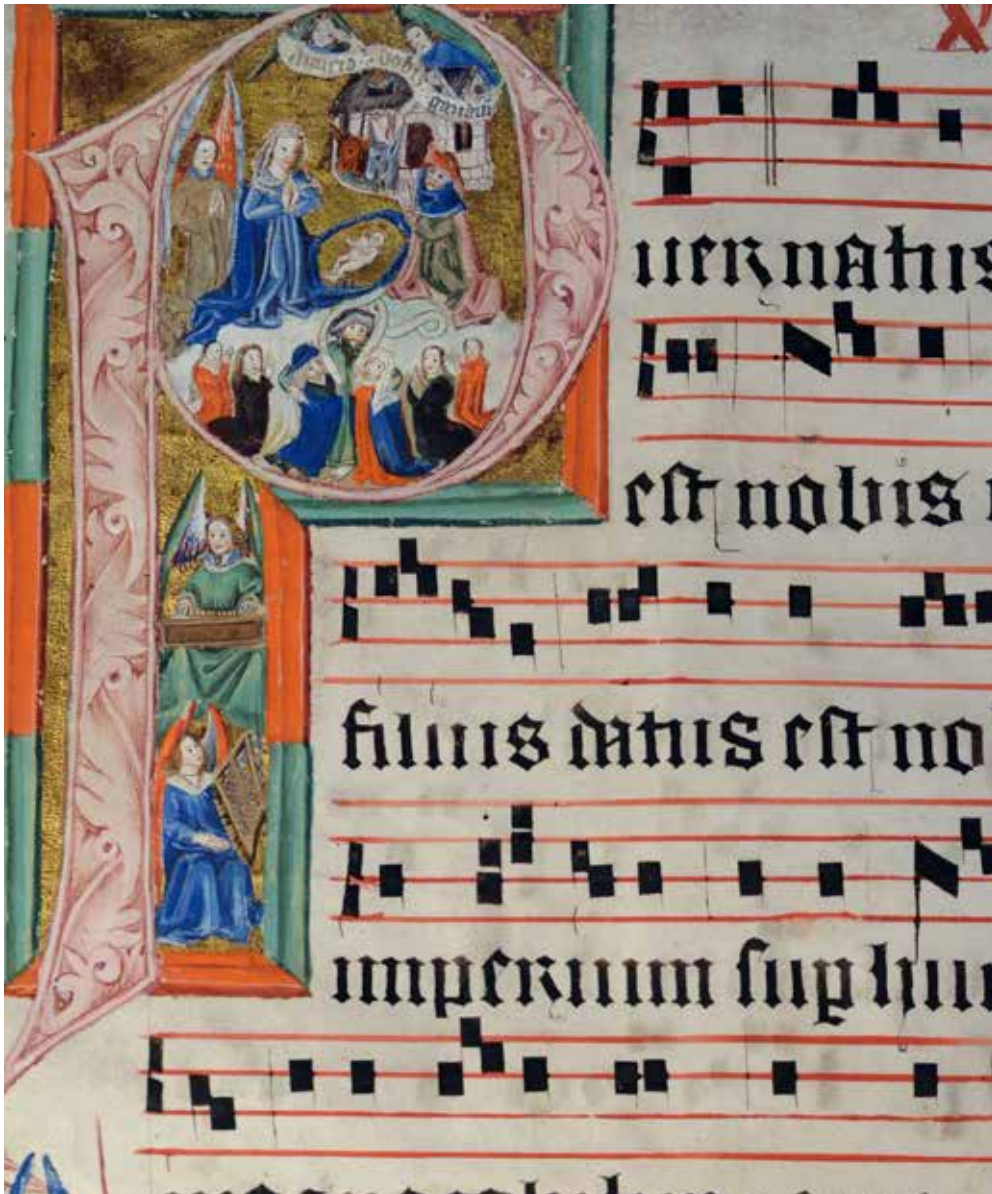 Puer natus
est nobis
filius datus est no
imperium sup hum